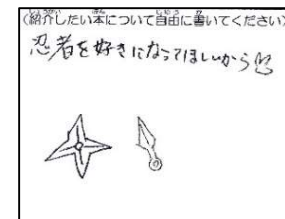 (紹介したい本について自由に書いてください)
忍者を好きになってほしいから